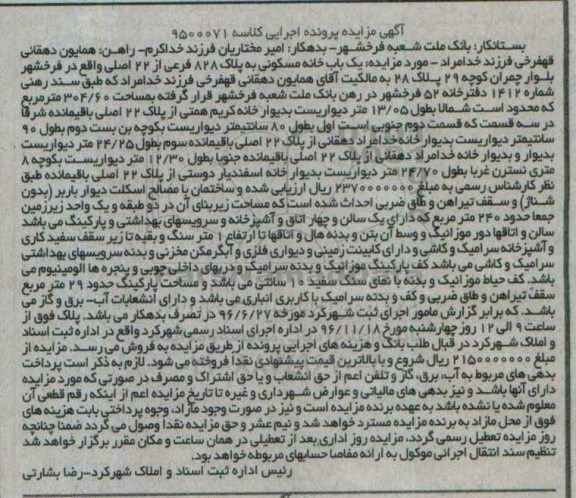 آگهی مزایده پرونده اجرایی کلاسه ۹۵۰۰۰۷۱
بستانکار: بانک ملت شعبه فرخشهر- بدهکار: امیر مختاریان فرزند خداکرم- راهن: همایون دهقانی
قهفرخی فرزند خدامراد - مورد مزایده: یک باب خانه مسکونی به پلاک ۸۲۸ فرعی از ۲۲ اصلی واقع در فرخشهر
بلوار چمران کوچه ۲۹ پلاک ۲۸ به مالکیت آقای همایون دهقانی قهفرخی فرزند خدامراد که طبق سند رهنی
شماره ۱۴۱۲ دفترخانه ۵۲ فرخشهر در رهن بانک ملت شعبه فرخشهر قرار گرفته بمساحت ۳۰۴/۶۰ مترمربع
که محدود است شمالا بطول ۱۳/۰۵ متر دیواریست بدیوار خانه کریم همتی از پلاک ۲۲ اصلی باقیمانده شرقا
در سه قسمت که قسمت دوم جنوبی است اول بطول ۸۰ سانتیمتر دیواریست بکوچه بن بست دوم بطول ۹۰
سانتیمتر دیواریست بدیوار خانه خدامراد دهقانی از پلاک ۲۲ اصلی باقیمانده سوم بطول ۲۴/۲۵ متر دیواریست
بدیوار و بدیوار خانه خدامراد دهقانی از پلاک ۲۲ اصلی باقیمانده جنوبا بطول ۱۲/۳۰ متر دیواریست بکوچه ۸
متری نسترن غربا بطول ۲۴/۷۰ متر دیواریست بدیوار خانه اسفندیار دوستی از پلاک ۲۲ اصلی باقیمانده طبق
نظر کارشناس رسمی به مبلغ ۲۳۷۰۰۰۰۰۰۰ ریال ارزیابی شده و ساختمان با مصالح اسکلت دیوار باربر (بدون
شناژ) و سقف تیراهن و طاق ضربی احداث شده است که مساحت زیربنای آن در دو طبقه و یک واحد زیرزمین
جمعا حدود ۲۴۰ متر مربع که دارای یک سالن و چهار اتاق و آشپزخانه و سرویسهای بهداشتی و پارکینگ می باشد
سالن و اتاقها دور موزائیک و وسط آن بتن و بدنه هال و اتاقها تا ارتفاع ۱ متر سنگ و بقیه تا زیر سقف سفید کاری
و آشپزخانه سرامیک و کاشی و دارای کابینت زمینی و دیواری فلزی و آبگرمکن مخزنی و بدنه سرویسهای بهداشتی
سرامیک و کاشی می باشد کف پارکینگ موزائیک و بدنه سرامیک و دربهای داخلی چوبی و پنجره ها الومینیوم می
باشد. کف حیاط موزائیک و بدنه با نمای سنگ سفید ۱۰ سانتی می باشد و مساحت پارکینگ حدود ۲۹ متر مربع
سقف تیراهن و طاق ضربی و کف و بدنه سرامیک با کاربری انباری می باشد و دارای انشعابات آب- برق و گاز می
باشد. که برابر گزارش مامور اجرای ثبت شهرکرد مورخه ۹۶/۶/۲۷ در تصرف بدهکار می باشد. پلاک فوق از
ساعت ۹ الی ۱۲ روز چهارشنبه مورخ ۹۶/۱۱/۱۸ در اداره اجرای اسناد رسمی شهرکرد واقع در اداره ثبت اسناد
و املاک شهرکرد در قبال طلب بانک و هزینه های اجرایی پرونده از طریق مزایده به فروش می رسد. مزایده از
مبلغ ۲۱۵۰۰۰۰۰۰۰ ریال شروع و با بالاترین قیمت پیشنهادی نقدا فروخته می شود. لازم به ذکر است پرداخت
بدهی های مربوط به آب، برق، گاز و تلفن اعم از حق انشعاب و یا حق اشتراک و مصرف در صورتی که مورد مزایده
دارای آنها باشد و نیز بدهی های مالیاتی و عوارض شهرداری و غیره تا تاریخ مزایده اعم از اینکه رقم قطعی آن
معلوم شده یا نشده باشد به عهده برنده مزایده است و نیز در صورت وجود مازاد، وجوه پرداختی بابت هزینه های
فوق از محل مازاد به برنده مزایده مسترد خواهد شد و نیم عشر و حق مزایده نقدا وصول می گردد ضمنا چنانچه
روز مزایده تعطیل رسمی گردد، مزایده روز اداری بعد از تعطیلی در همان ساعت و مکان مقرر برگزار خواهد شد
تنظیم سند انتقال اجرائی موکول به ارائه مفاصا حسابهای مربوطه خواهد بود.
رئیس اداره ثبت اسناد و املاک شهرکرد- رضا بشارتی